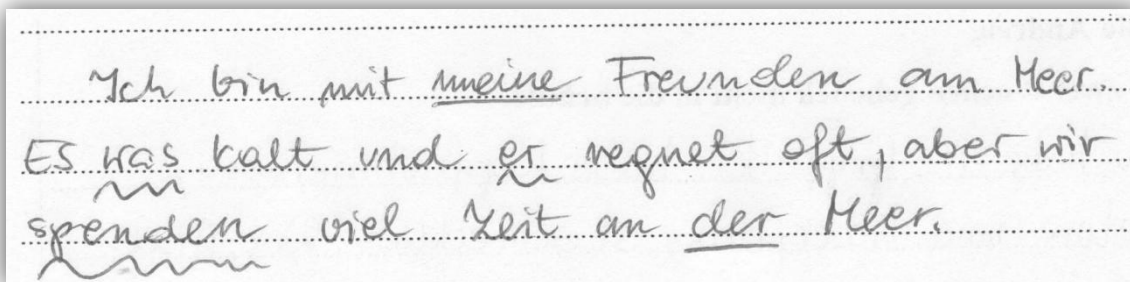 Ich bin mit meine Freunden am Meer.
Es was kalt und er regnet oft, aber wir
spenden viel Zeit an der Meer.